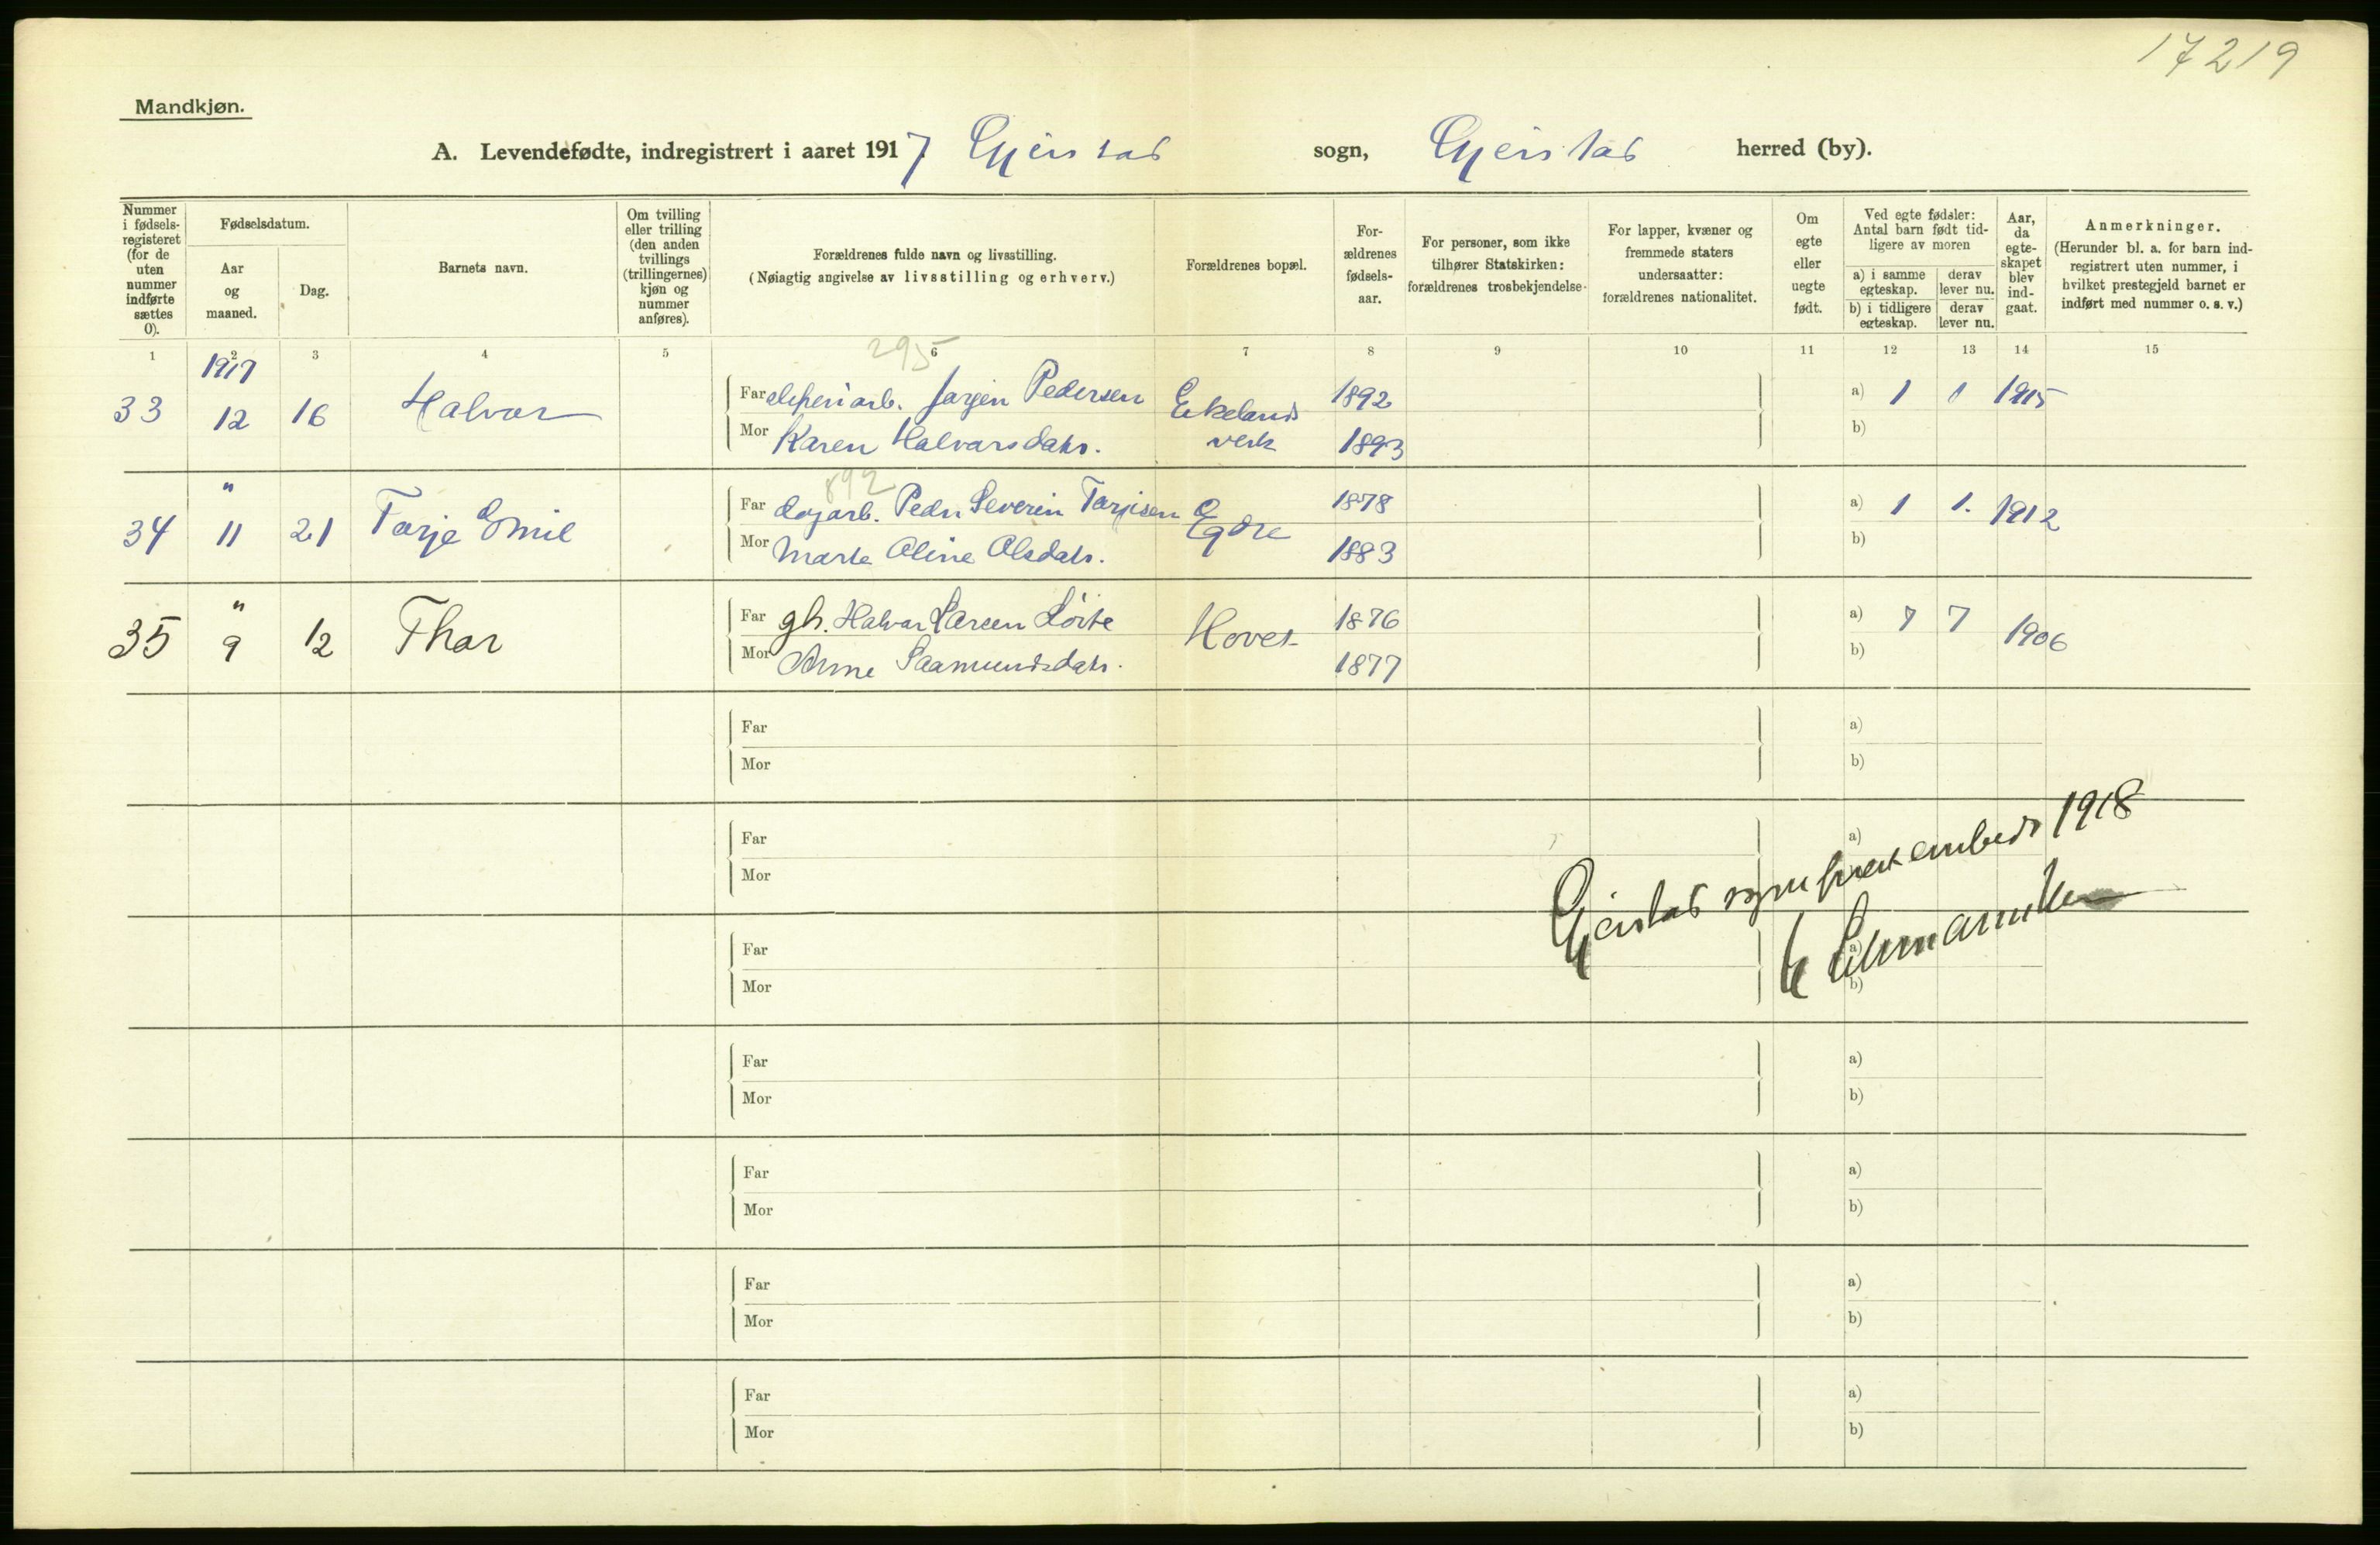 17219
Mandkjøn.
A. Levendefødte, indregistrert i aaret 1917 Gjerstad sogn, Gjerstad herred (by).
Nummer i fødsels-registeret (for de uten nummer indførte sættes 0).
Fødselsdatum.
Aar og maaned.
Dag.
Barnets navn.
Om tvilling eller trilling (den anden tvillings (trillingernes) kjøn og nummer anføres).
Forældrenes fulde navn og livsstilling.
(Nøiagtig angivelse av livsstilling og erhverv.)
Forældrenes bopæl.
For-ældrenes fødsels-aar.
For personer, som ikke tilhører Statskirken: forældrenes trosbekjendelse.
For lapper, kvæner og fremmede staters undersaatter: forældrenes nationalitet.
Om egte eller uegte født.
Ved egte fødsler: Antal barn født tid-ligere av moren
a) i samme egteskap.
derav lever nu.
b) i tidligere egteskap.
derav lever nu.
Aar, da egte-skapet blev ind-gaat.
Anmerkninger.
(Herunder bl. a. for barn ind-registrert uten nummer, i hvilket prestegjeld barnet er indført med nummer o. s. v.)
1 2 3 4 5 6 7 8 9 10 11 12 13 14 15
1917
295
33 12 16 Halvor Far sliperiarb. Jørgen Pedersen Ekelands 1892 a) 1 1 1915
Mor Karen Halvorsdatr. verk 1893 b)
892
34 " 11 21 Tarje Emil Far dagarb. Peder Severin Tarjesen Egdre 1878 a) 1 1. 1912
Mor Marte Aline Olsdatr. 1883 b)
35 " 9 12 Thor Far gb. Halvor Larsen Hovet 1876 a) 7 7 1906
Mor Anne Saamundsdatr. 1877 b)
Far a)
Mor b)
Far a)
Mor
Gjerstad sogneprestembede 1918
Far a)
Mor b)
Far a)
Mor b)
Far a)
Mor b)
Far a)
Mor b)
Far a)
Mor b)